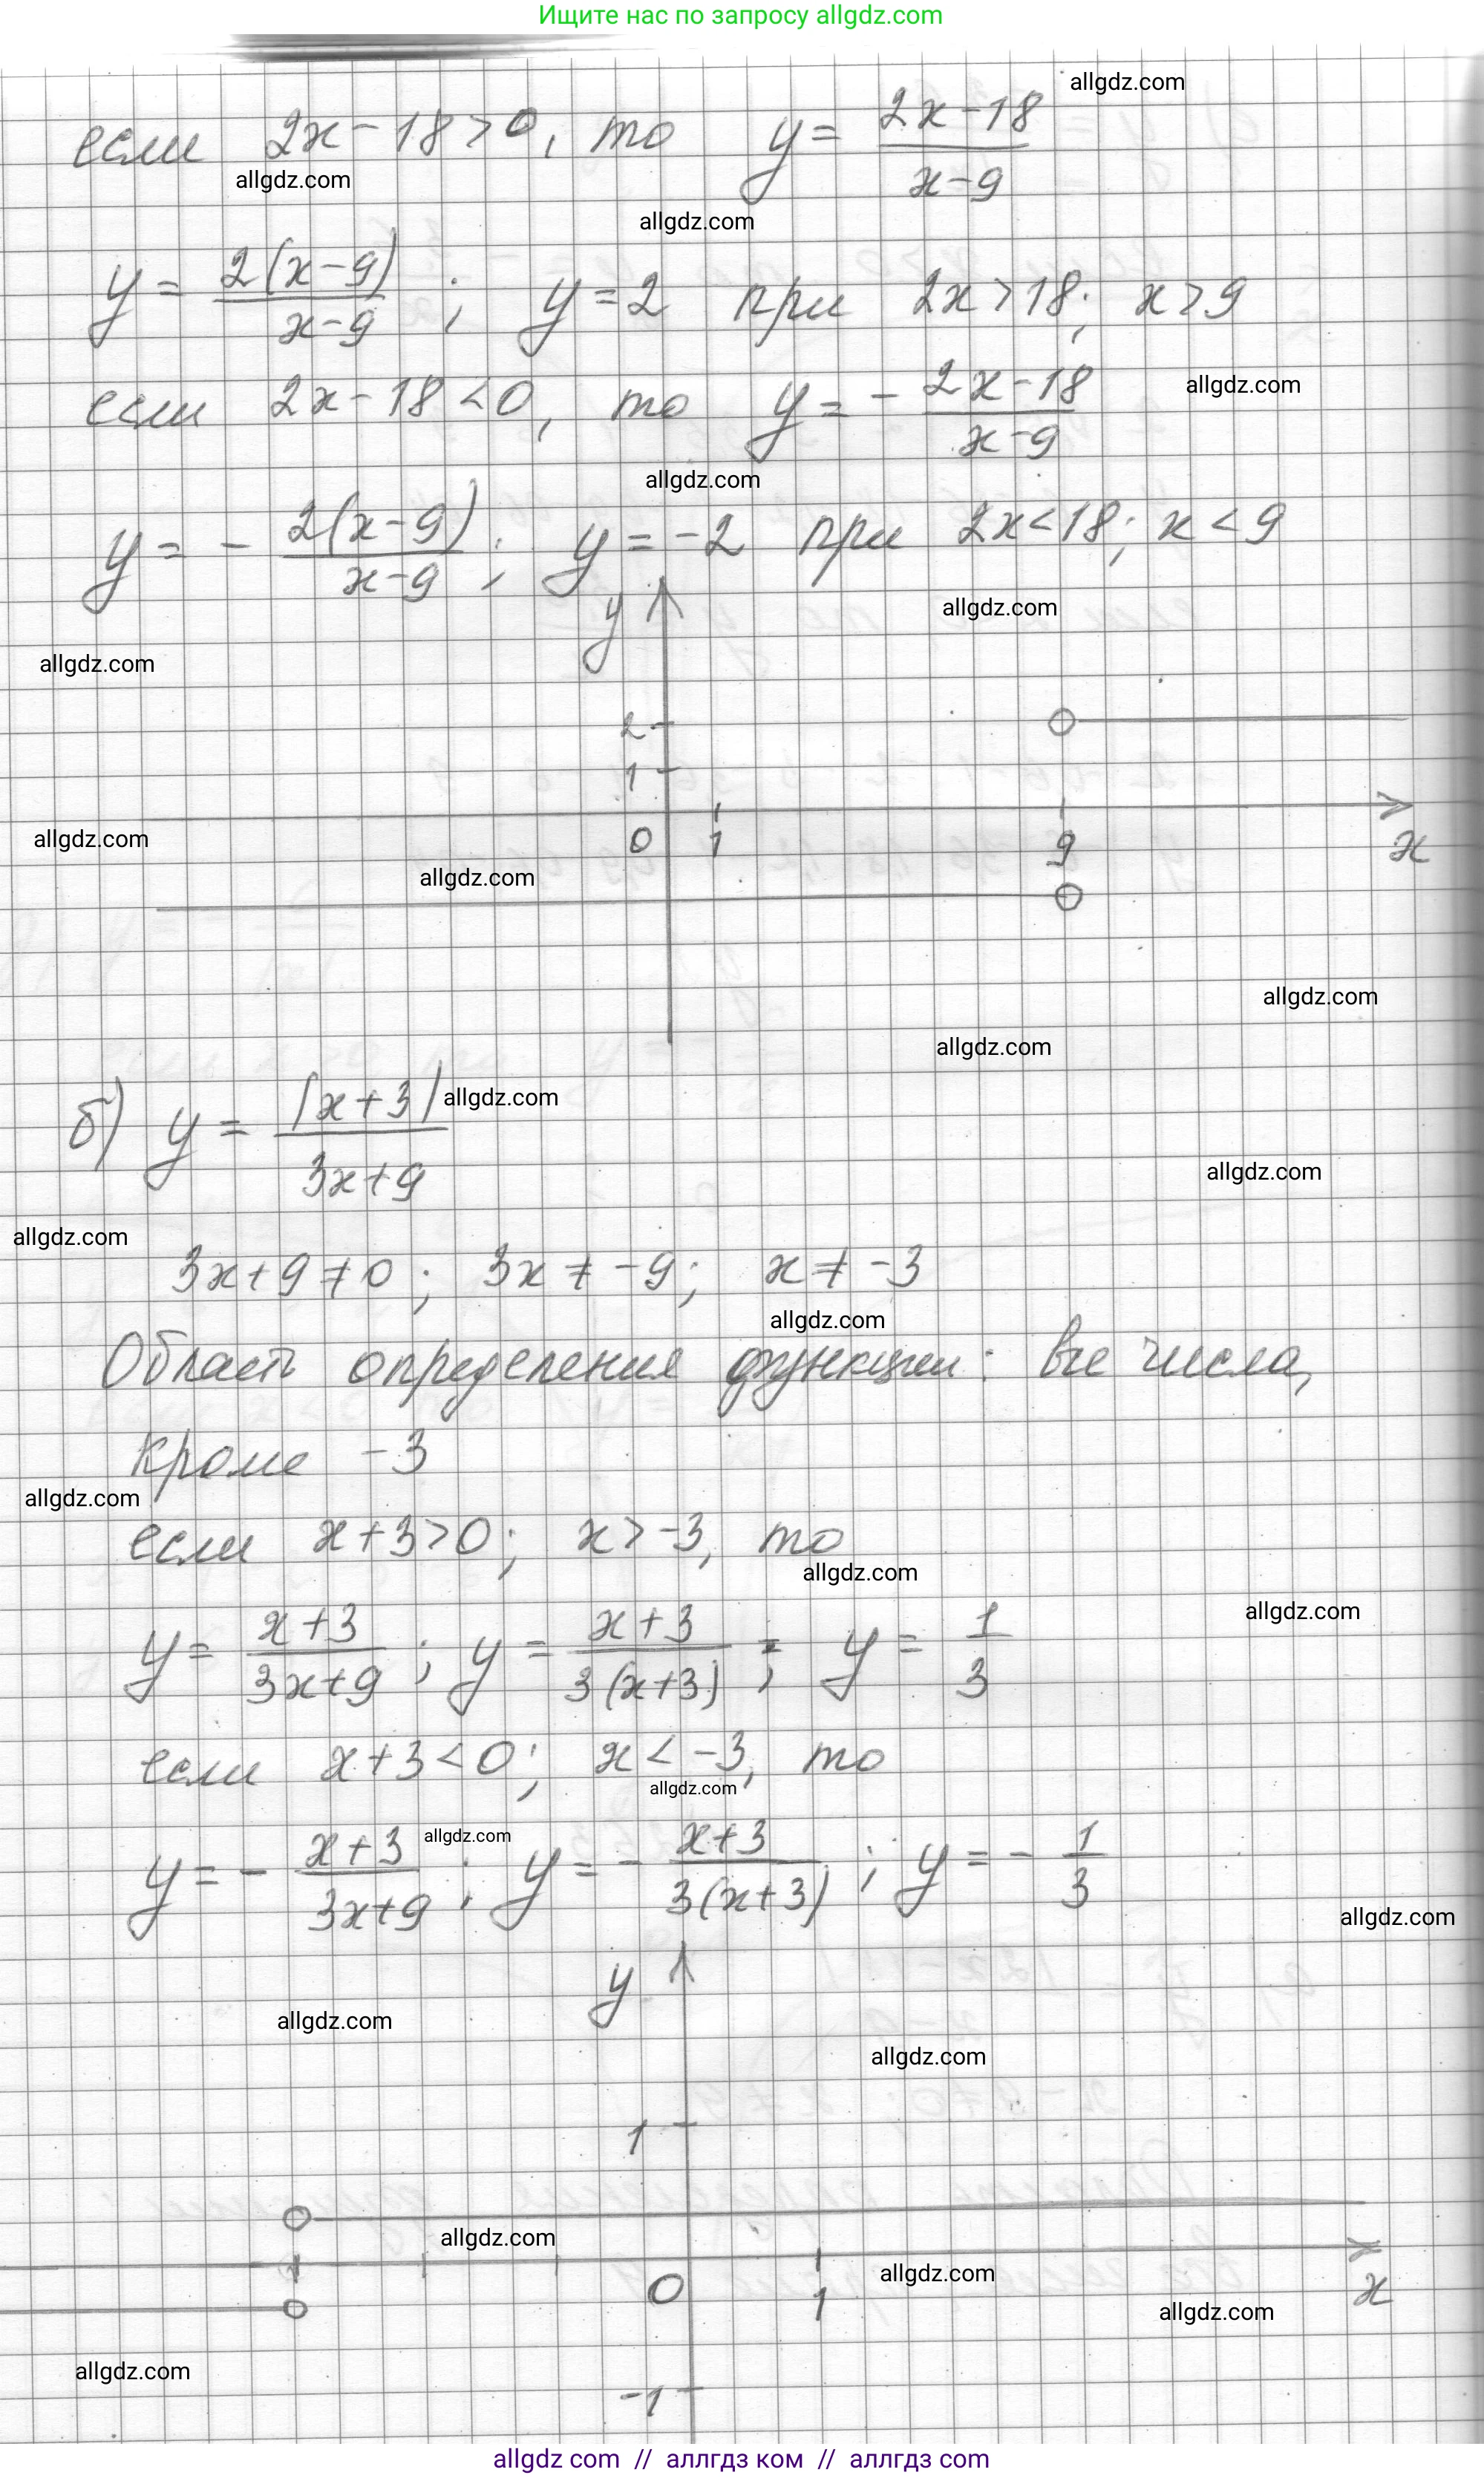 Ищите нас по запросу allgdz.com
allgdz.com
если 2x - 18 > 0, то y = (2x - 18)/(x - 9)
allgdz.com
allgdz.com
y = 2(x - 9)/(x - 9); y = 2 при 2x > 18; x > 9
allgdz.com
если 2x - 18 < 0, то y = - (2x - 18)/(x - 9)
allgdz.com
y = - 2(x - 9)/(x - 9); y = -2 при 2x < 18; x < 9
allgdz.com
y
allgdz.com
2
1
allgdz.com
0 1 9 x
allgdz.com
allgdz.com
allgdz.com
б) y = |x + 3|/(3x + 9)
allgdz.com
allgdz.com
allgdz.com
3x + 9 ≠ 0; 3x ≠ -9; x ≠ -3
allgdz.com
Область определения функции: все числа,
кроме -3
allgdz.com
если x + 3 > 0; x > -3, то
allgdz.com
allgdz.com
y = (x + 3)/(3x + 9); y = (x + 3)/(3(x + 3)); y = 1/3
если x + 3 < 0; x < -3, то
allgdz.com
allgdz.com
y = - (x + 3)/(3x + 9); y = - (x + 3)/(3(x + 3)); y = - 1/3
allgdz.com
y
allgdz.com
allgdz.com
1
allgdz.com
allgdz.com
0 1 x
allgdz.com
allgdz.com
-1
allgdz com // аллгдз ком // аллгдз com